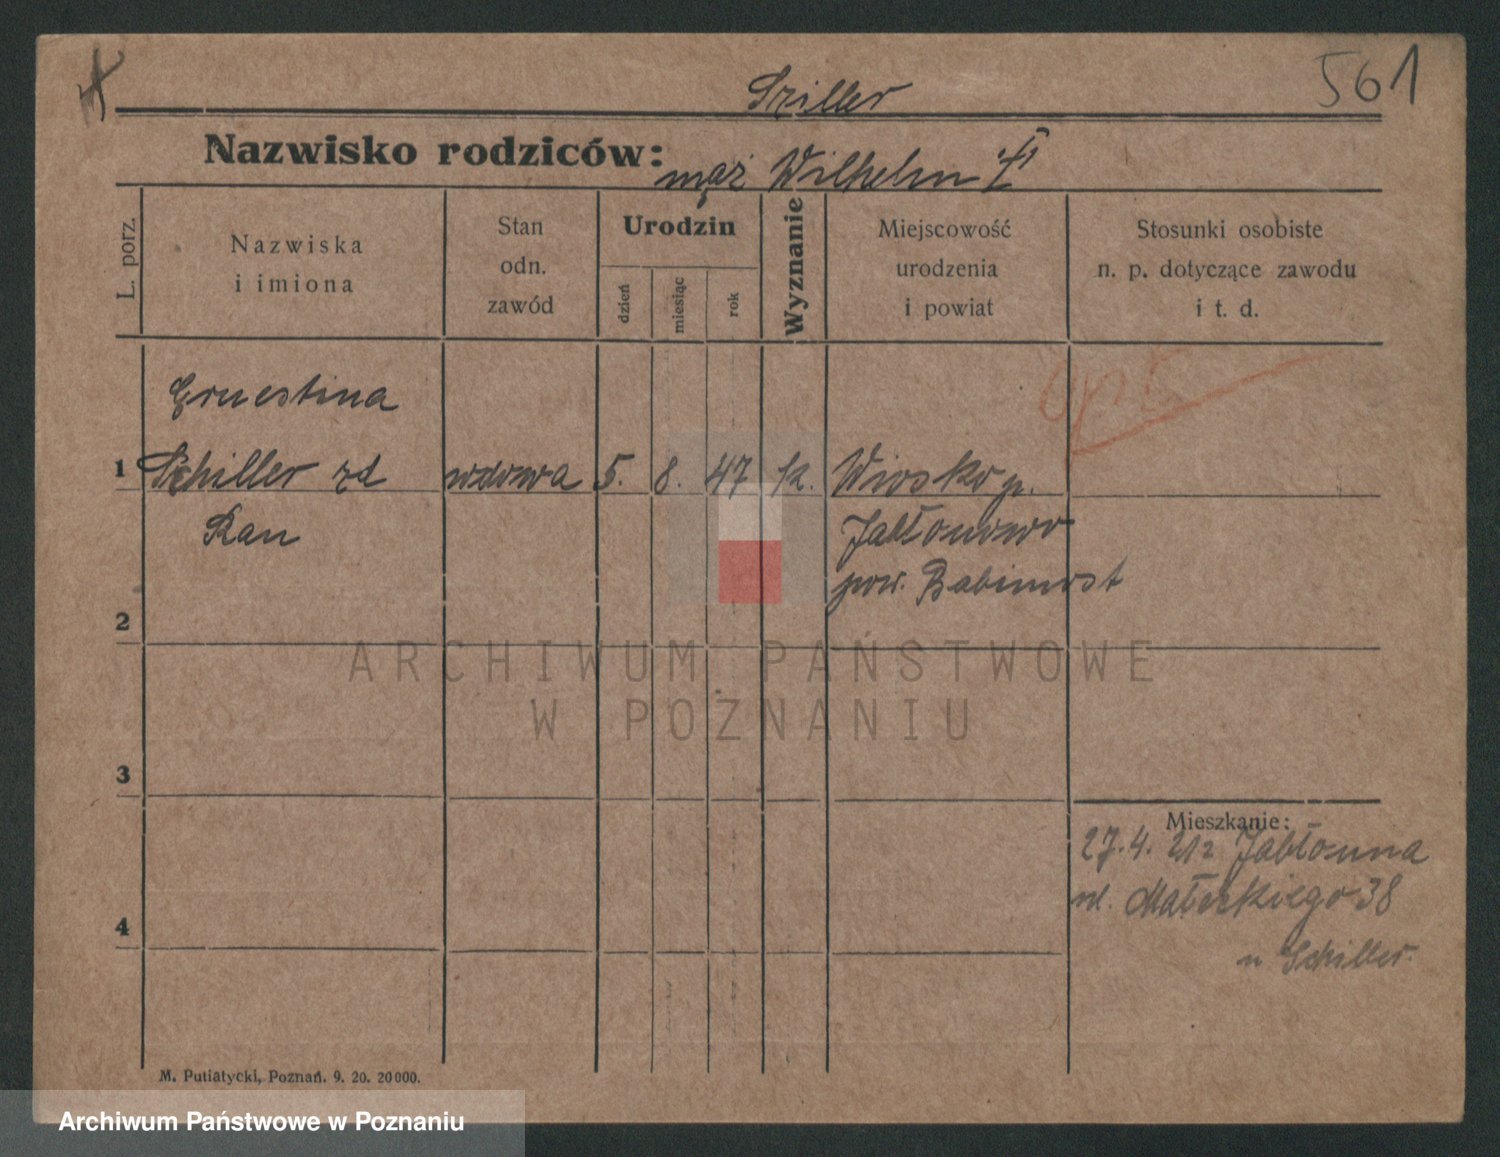 561
Sziller
Nazwisko rodziców: mąż Wilhelm
L. porz.
Nazwiska
i imiona
Stan
odn.
zawód
Urodzin
dzień
miesiąc
rok
Wyznanie
Miejscowość
urodzenia
i powiat
Stosunki osobiste
n. p. dotyczące zawodu
i t. d.
Ernestina
1 Schiller zd wdowa 5. 8. 47 k. Wiosko p.
Rau Jabłonowo
pow. Babimost
2
3
4
Mieszkanie:
27.4. 21 z Jabłonna
ul. Małeckiego 38
u Schiller.
M. Putiatycki, Poznań. 9. 20. 20000.
ARCHIWUM PAŃSTWOWE
W POZNANIU
Archiwum Państwowe w Poznaniu